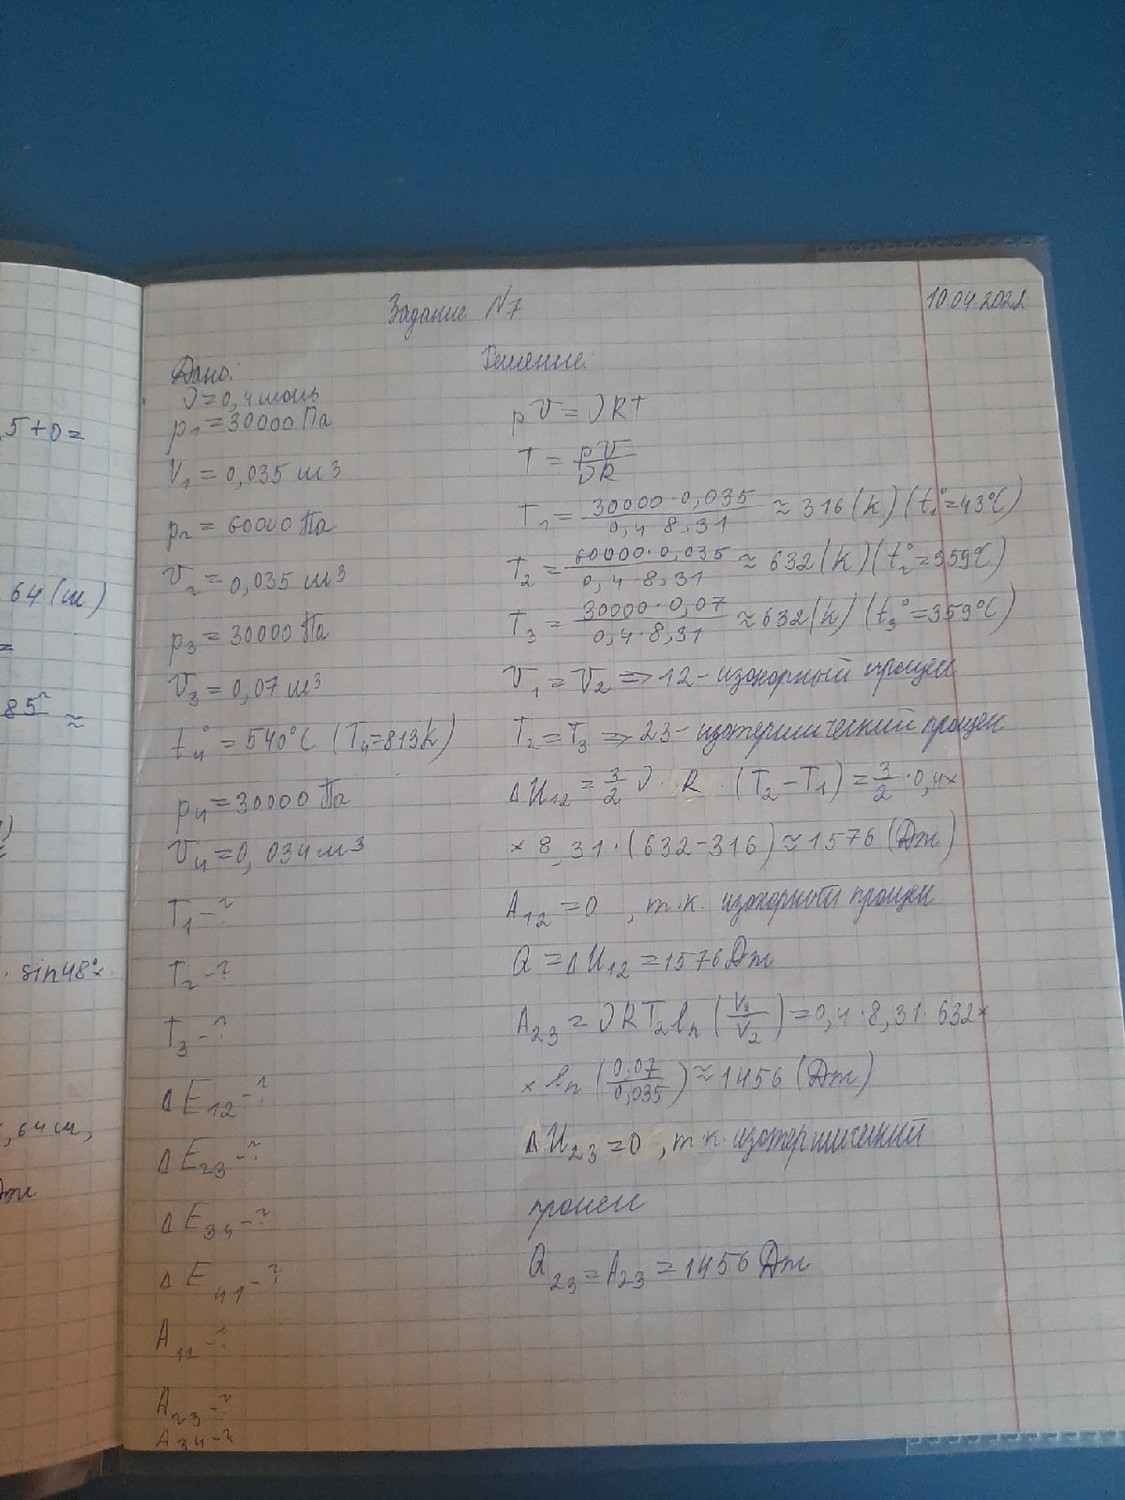 Задание N7
10.04.2022
Дано:
ν=0,4 моль
p₁=30000 Па
V₁=0,035 м³
p₂=60000 Па
V₂=0,035 м³
p₃=30000 Па
V₃=0,07 м³
t₄°=540°C (T₄=813k)
p₄=30000 Па
V₄=0,034 м³
T₁-?
T₂-?
T₃-?
ΔE₁₂-?
ΔE₂₃-?
ΔE₃₄-?
ΔE₄₁-?
A₁₂-?
A₂₃-?
A₃₄-?
Решение:
pV=νRT
T=pV/νR
T₁=30000·0,035/0,4·8,31≈316(k)(t₁°=43°C)
T₂=60000·0,035/0,4·8,31≈632(k)(t₂°=359°C)
T₃=30000·0,07/0,4·8,31≈632(k)(t₃°=359°C)
V₁=V₂⇒12-изохорный процесс
T₂=T₃⇒23-изотермический процесс
ΔU₁₂=3/2ν·R·(T₂-T₁)=3/2·0,4×
×8,31·(632-316)≈1576(Дж)
A₁₂=0, т.к. изохорный процесс
Q=ΔU₁₂=1576Дж
A₂₃=νRT₂ln(V₃/V₂)=0,4·8,31·632×
×ln(0,07/0,035)≈1456(Дж)
ΔU₂₃=0, т.к. изотермический
процесс
Q₂₃=A₂₃=1456Дж
5+0=
64(м)
=
85²
≈
·sin48°×
,64м,
Дж